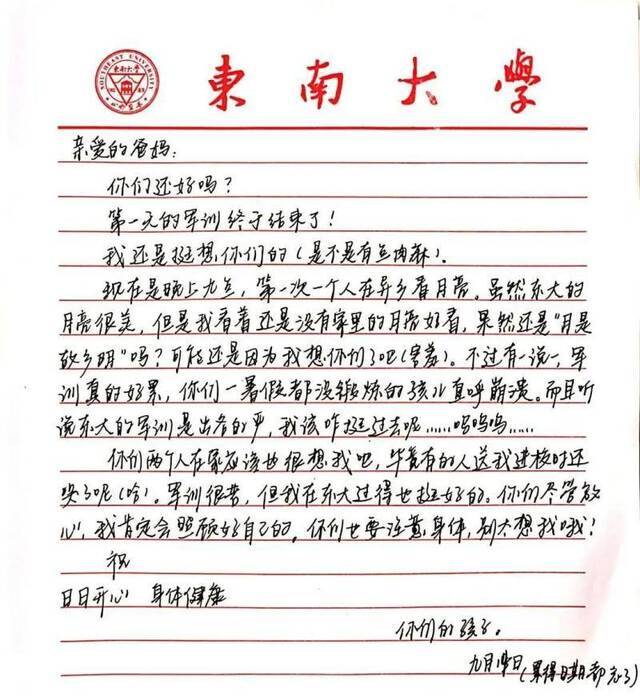 SOUTHEAST UNIVERSITY
東南大學
東南大學
亲爱的爸妈:
你们还好吗?
第一天的军训终于结束了!
我还是挺想你们的(是不是有点肉麻)。
现在是晚上九点,第一次一个人在异乡看月亮。虽然东大的
月亮很美,但是我看着还是没有家里的月亮好看,果然还是“月是
故乡明”吗?可能还是因为我想你们了吧(害羞)。不过有一说一,军
训真的好累,你们一暑假都没锻炼的孩儿直呼崩溃。而且听
说东大的军训是出名的严,我该咋挺过去呢……呜呜呜……
你们两个人在家应该也很想我吧,毕竟有的人送我进校时还
哭了呢(哈)。军训很苦,但我在东大过得也挺好的。你们尽管放
心,我肯定会照顾好自己的。你们也要注意身体,别太想我哦!
祝
日日开心 身体健康
你们的孩子。
九月 日(累得日期都忘了)